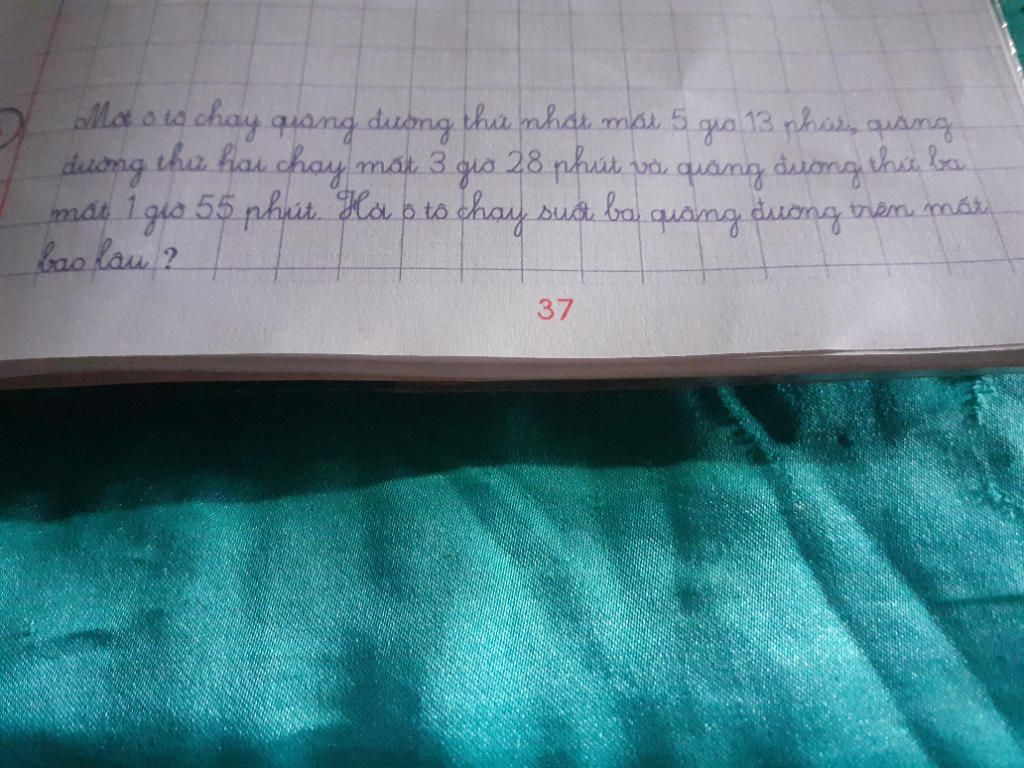 Một ô tô chạy quãng đường thứ nhất mất 5 giờ 13 phút, quãng
đường thứ hai chạy mất 3 giờ 28 phút và quãng đường thứ ba
mất 1 giờ 55 phút. Hỏi ô tô chạy suốt ba quãng đường trên mất
bao lâu ?
37